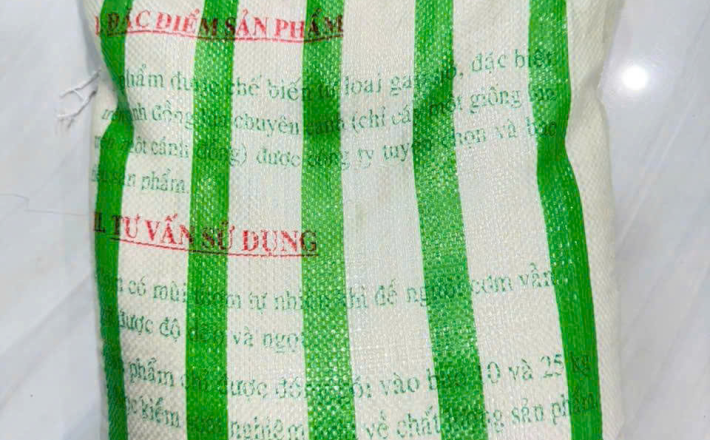 I. ĐẶC ĐIỂM SẢN PHẨM
phẩm được chế biến từ loại gạo, đặc biệt
đồng chuyên canh (chỉ cấy một giống
một cánh đồng) được công ty tuyển chọn và
sản phẩm.
II. TƯ VẤN SỬ DỤNG
có mùi thơm tự nhiên khi để nguội cơm vẫn
được độ dẻo và ngọt
phẩm chỉ được đóng gói vào bao 10 và 25 kg
kiểm nghiệm về chất lượng sản phẩm